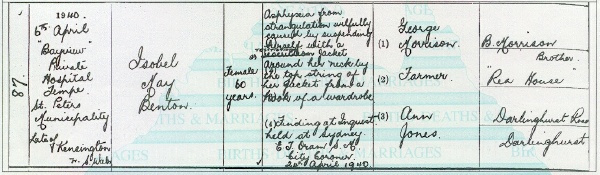 87.
1940.
6th April
"Bayview"
Private
Hospital
Tempe
St. Peters
Municipality
Late of
Kensington
Isobel
May
Benton.
Female
60
years.
Asphyxia from
strangulation wilfully
caused by suspending
herself with a
jacket
around her neck by
the top string of
her jacket from a
hook of a wardrobe
(1) Finding at Inquest
held at Sydney
E. T. Oram S.M.
City Coroner.
April 1940.
(1) George
Morrison.
(2) Farmer.
(3) Ann
Jones.
B. Morrison
Brother.
"Rea House"
Darlinghurst Road
Darlinghurst
BIRTHS DEATHS & MARRIAGES